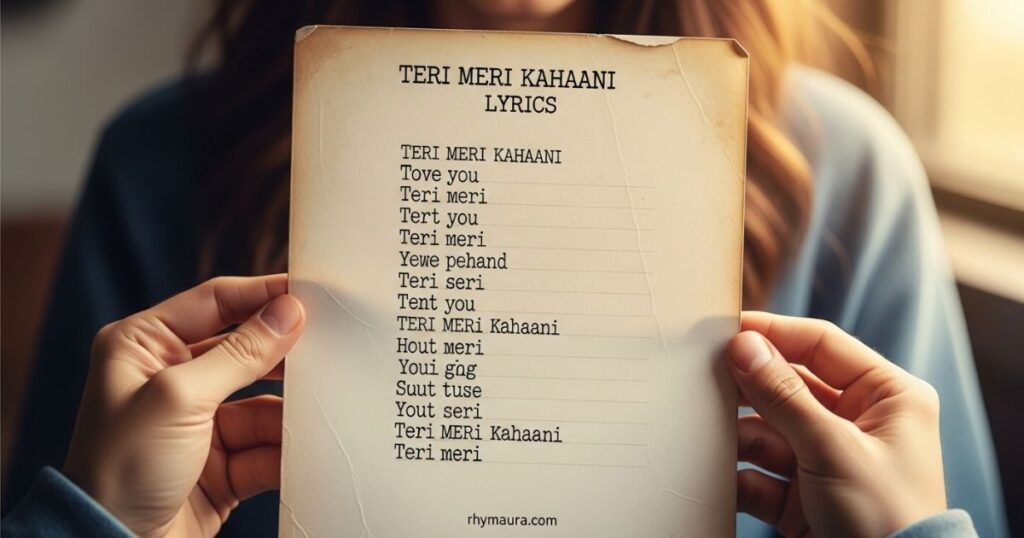 TERI MERI KAHAANI
LYRICS
TERI MERI KAHAANI
Tove you
Teri meri
Tert you
Teri meri
Yewe pehand
Teri seri
Tent you
TERI MERi Kahaani
Hout meri
Youi gng
Suut tuse
Yout seri
Teri MERi Kahaani
Teri meri
rhymaura.com